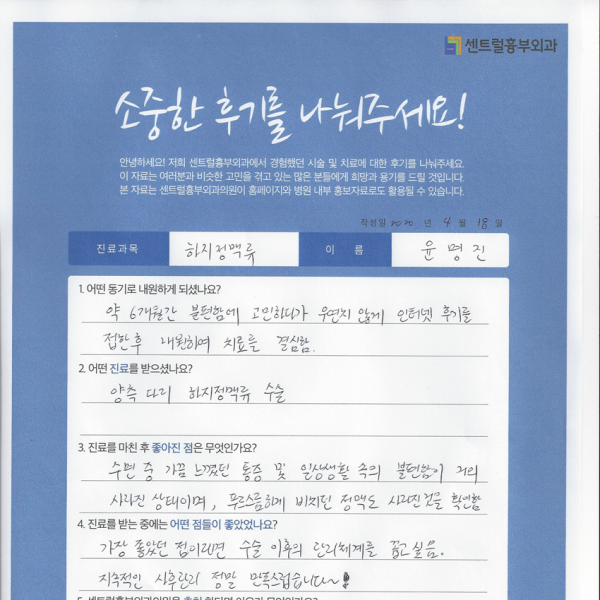 센트럴흉부외과
소중한 후기를 나눠주세요!
안녕하세요! 저희 센트럴흉부외과에서 경험했던 시술 및 치료에 대한 후기를 나눠주세요.
이 자료는 여러분과 비슷한 고민을 겪고 있는 많은 분들에게 희망과 용기를 드릴 것입니다.
본 자료는 센트럴흉부외과의원이 홈페이지와 병원 내부 홍보자료로도 활용될 수 있습니다.
작성일 2020 년 4 월 18 일
진료과목 하지정맥류 이 름 윤명진
1. 어떤 동기로 내원하게 되셨나요?
약 6개월간 불편함에 고민하다가 우연치 않게 인터넷 후기를
접한후 내원하여 치료를 결심함.
2. 어떤 진료를 받으셨나요?
양측 다리 하지정맥류 수술
3. 진료를 마친 후 좋아진 점은 무엇인가요?
수면 중 가끔 느꼈던 통증 및 일상생활 속의 불편함이 거의
사라진 상태이며, 푸르스름하게 비치던 정맥도 사라진것을 확인함
4. 진료를 받는 중에는 어떤 점들이 좋았었나요?
가장 좋았던 점이라면 수술 이후의 관리체계를 꼽고싶음.
지속적인 사후관리 정말 만족스럽습니다~!